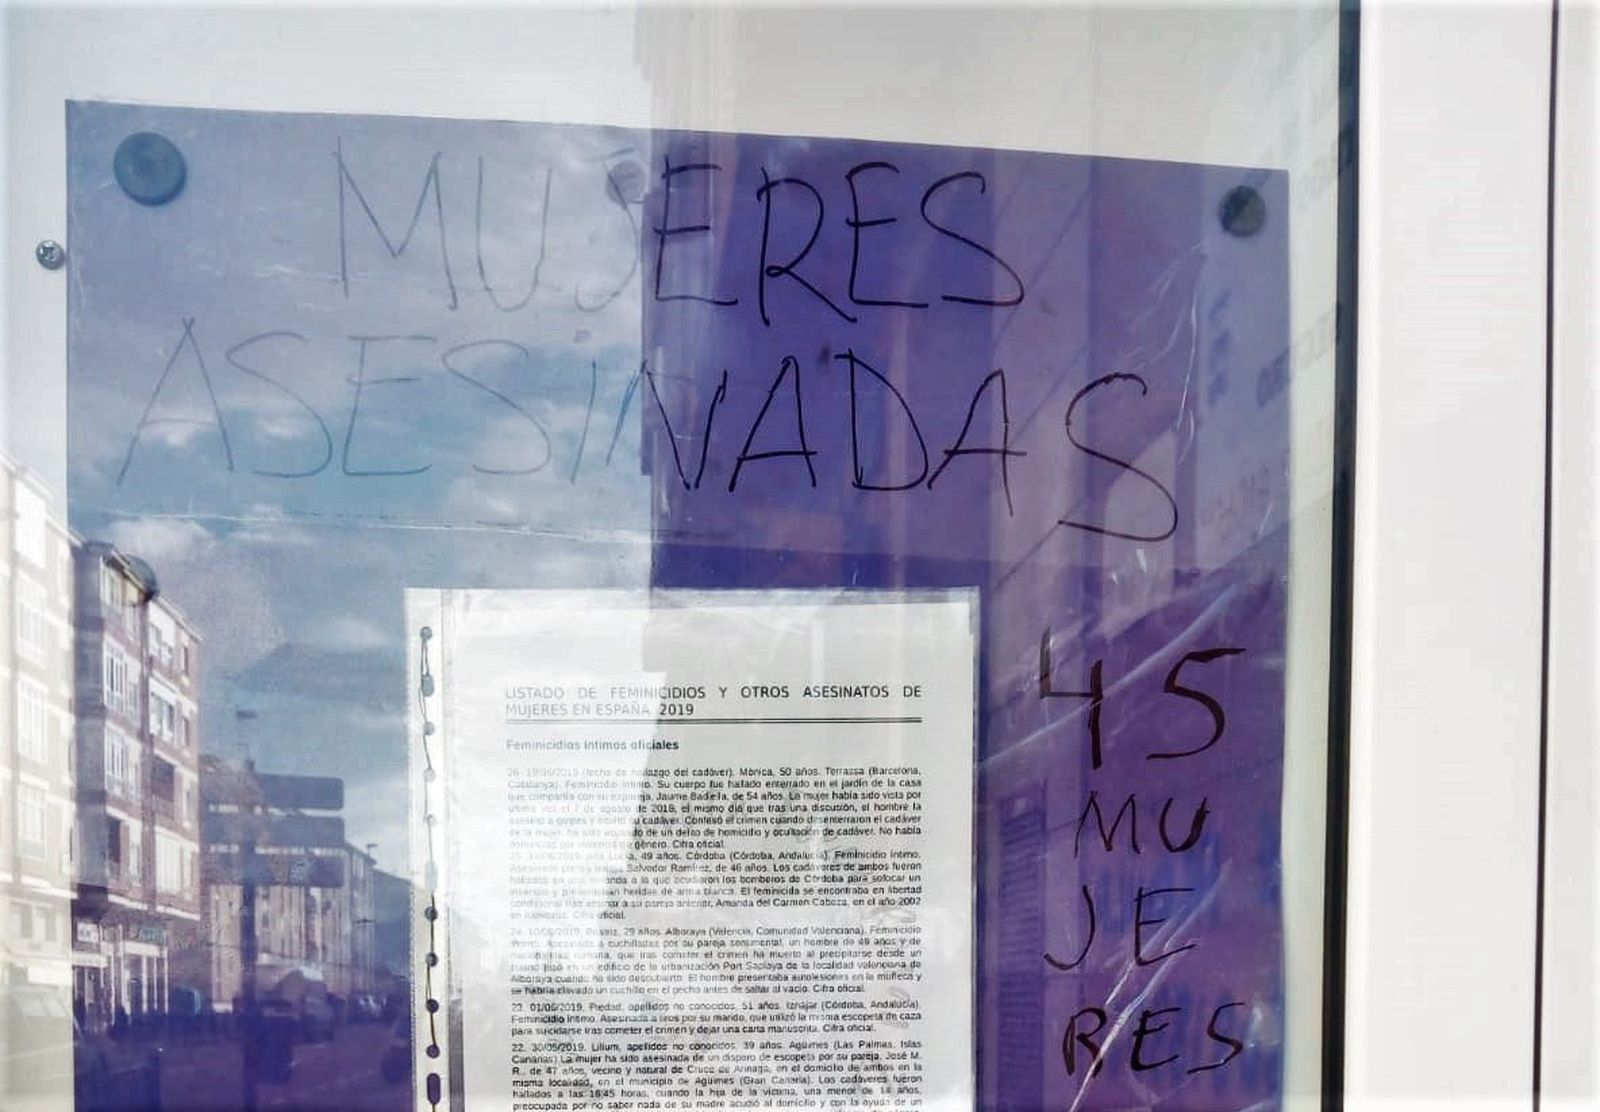 MUJERES
ASESINADAS
45
MU
JE
RES
LISTADO DE FEMINICIDIOS Y OTROS ASESINATOS DE
MUJERES EN ESPAÑA 2019
Feminicidios íntimos oficiales
26. 19/06/2019 (fecha de hallazgo del cadáver). Mónica, 50 años. Terrassa (Barcelona,
Catalunya). Feminicidio íntimo. Su cuerpo fue hallado enterrado en el jardín de la casa
que compartía con su expareja, Jaume Badiella, de 54 años. La mujer había sido vista por
última vez el 7 de agosto de 2018, el mismo día que tras una discusión, el hombre la
asesinó a golpes y ocultó su cadáver. Confesó el crimen cuando desenterraron el cadáver
de la mujer. ha sido acusado de un delito de homicidio y ocultación de cadáver. No había
denuncias por violencia de género. Cifra oficial.
Lucía, 49 años. Córdoba (Córdoba, Andalucía). Feminicidio íntimo.
Asesinada por su pareja Salvador Ramírez, de 46 años. Los cadáveres de ambos fueron
hallados en una vivienda a la que acudieron los bomberos de Córdoba para sofocar un
incendio y presentaban heridas de arma blanca. El feminicida se encontraba en libertad
condicional tras asesinar a su pareja anterior, Amanda del Carmen Cabeza, en el año 2002
Cifra oficial.
24. 10/06/2019. Beatriz, 29 años. Alboraya (Valencia, Comunidad Valenciana). Feminicidio
íntimo. Asesinada a cuchilladas por su pareja sentimental, un hombre de 49 años y de
nacionalidad rumana, que tras cometer el crimen ha muerto al precipitarse desde un
cuarto piso en un edificio de la urbanización Port Saplaya de la localidad valenciana de
Alboraya cuando ha sido descubierto. El hombre presentaba autolesiones en la muñeca y
se habría clavado un cuchillo en el pecho antes de saltar al vacío. Cifra oficial.
23. 01/06/2019. Piedad, apellidos no conocidos. 51 años. Iznájar (Córdoba, Andalucía).
Feminicidio íntimo. Asesinada a tiros por su marido, que utilizó la misma escopeta de caza
para suicidarse tras cometer el crimen y dejar una carta manuscrita. Cifra oficial.
22. 30/05/2019. Lilium, apellidos no conocidos. 39 años. Agüimes (Las Palmas, Islas
Canarias) La mujer ha sido asesinada de un disparo de escopeta por su pareja, José M.
R., de 47 años, vecino y natural de Cruce de Arinaga, en el domicilio de ambos en la
misma localidad, en el municipio de Agüimes (Gran Canaria). Los cadáveres fueron
hallados a las 16:45 horas, cuando la hija de la víctima, una menor de 14 años,
preocupada por no saber nada de su madre acudió al domicilio y con la ayuda de un